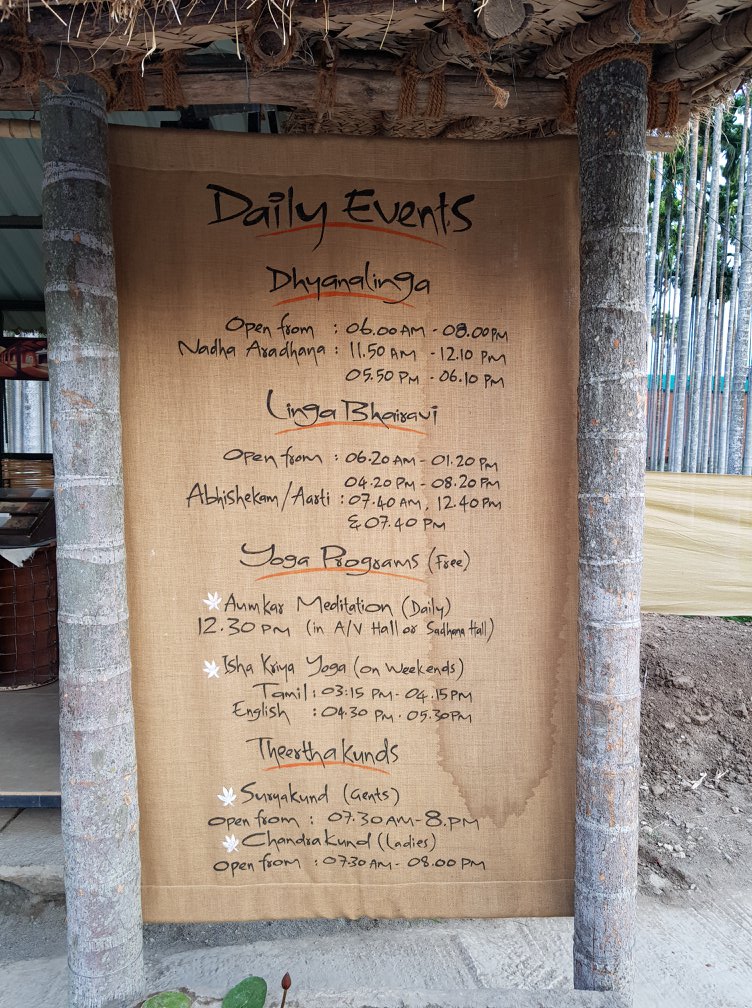 Daily Events
Dhyanalinga
Open from : 06.00 AM - 08.00 PM
Nadha Aradhana : 11.50 AM - 12.10 PM
05.50 PM - 06.10 PM
Linga Bhairavi
Open from : 06.20 AM - 01.20 PM
04.20 PM - 08.20 PM
Abhishekam/Aarti : 07.40 AM, 12.40 PM
& 07.40 PM
Yoga Programs (Free)
Aumkar Meditation (Daily)
12.30 PM (in A/V Hall or Sadhana Hall)
Isha Kriya Yoga (on Weekends)
Tamil : 03:15 PM - 04.15 PM
English : 04.30 PM - 05.30 PM
Theerthakunds
Suryakund (Gents)
Open from : 07.30 AM - 8.PM
Chandrakund (Ladies)
Open from : 07.30 AM - 08.00 PM